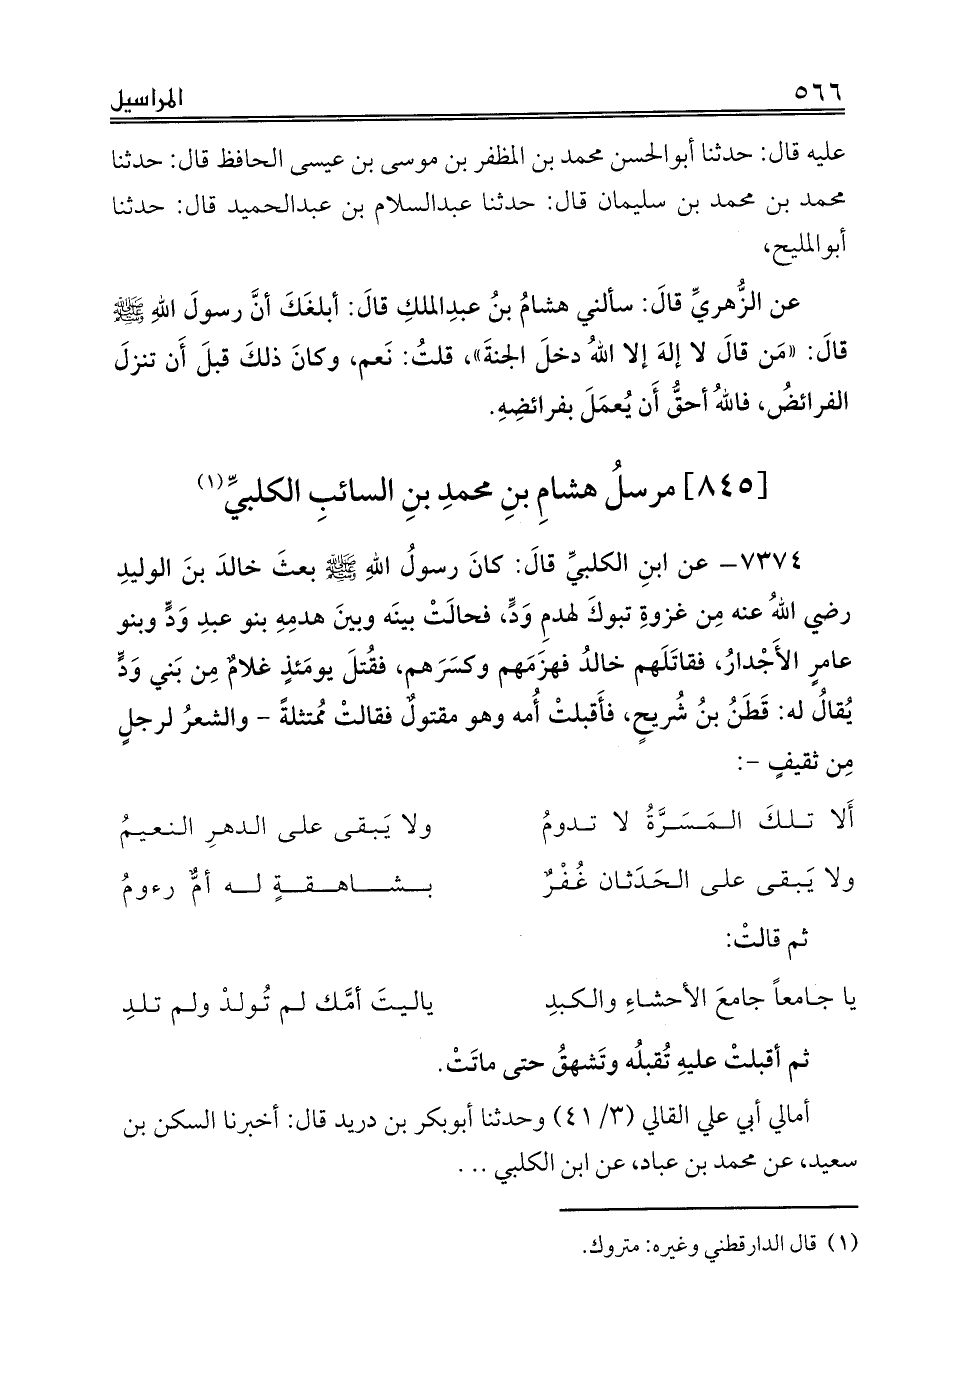 ٥٦٦ المراسيل
عليه قال: حدثنا أبوالحسن محمد بن المظفر بن موسى بن عيسى الحافظ قال: حدثنا
محمد بن محمد بن سليمان قال: حدثنا عبدالسلام بن عبدالحميد قال: حدثنا
أبوالمليح،
عن الزُّهريِّ قالَ: سألني هشامُ بنُ عبدِالملكِ قالَ: أبلغَكَ أنَّ رسولَ اللهِ ﷺ
قالَ: «مَن قالَ لا إلهَ إلا اللهُ دخلَ الجنةَ»، قلتُ: نَعم، وكانَ ذلكَ قبلَ أَن تنزلَ
الفرائضُ، فاللهُ أحقُّ أَن يُعمَلَ بفرائضِهِ.
[٨٤٥] مرسلُ هشامِ بنِ محمدِ بنِ السائبِ الكلبيِّ(١)
٧٣٧٤- عن ابنِ الكلبيِّ قالَ: كانَ رسولُ اللهِ ﷺ بعثَ خالدَ بنَ الوليدِ
رضي اللهُ عنه مِن غزوةِ تبوكَ لهدمِ وَدٍّ، فحالَتْ بينَه وبينَ هدمِهِ بنو عبدِ وَدٍّ وبنو
عامرٍ الأَجْدارُ، فقاتَلَهم خالدُ فهزَمَهم وكسَرَهم، فقُتلَ يومَئذٍ غلامٌ مِن بَني وَدٍّ
يُقالُ له: قَطَنُ بنُ شُريحٍ، فأَقبلتْ أُمه وهو مقتولٌ فقالتْ مُمتثلةً - والشعرُ لرجلٍ
مِن ثقيفٍ -:
أَلا تلكَ المَسَرَّةُ لا تدومُ ولا يَبقى على الدهرِ النعيمُ
ولا يَبقى على الحَدَثان غُفْرٌ بشاهقةٍ له أمٌّ رءومُ
ثم قالتْ:
يا جامعاً جامعَ الأحشاءِ والكبدِ ياليتَ أمَّك لم تُولدْ ولم تلدِ
ثم أقبلتْ عليهِ تُقبلُه وتَشهقُ حتى ماتَتْ.
أمالي أبي علي القالي (٣/ ٤١) وحدثنا أبوبكر بن دريد قال: أخبرنا السكن بن
سعيد، عن محمد بن عباد، عن ابن الكلبي ...
(١) قال الدارقطني وغيره: متروك.